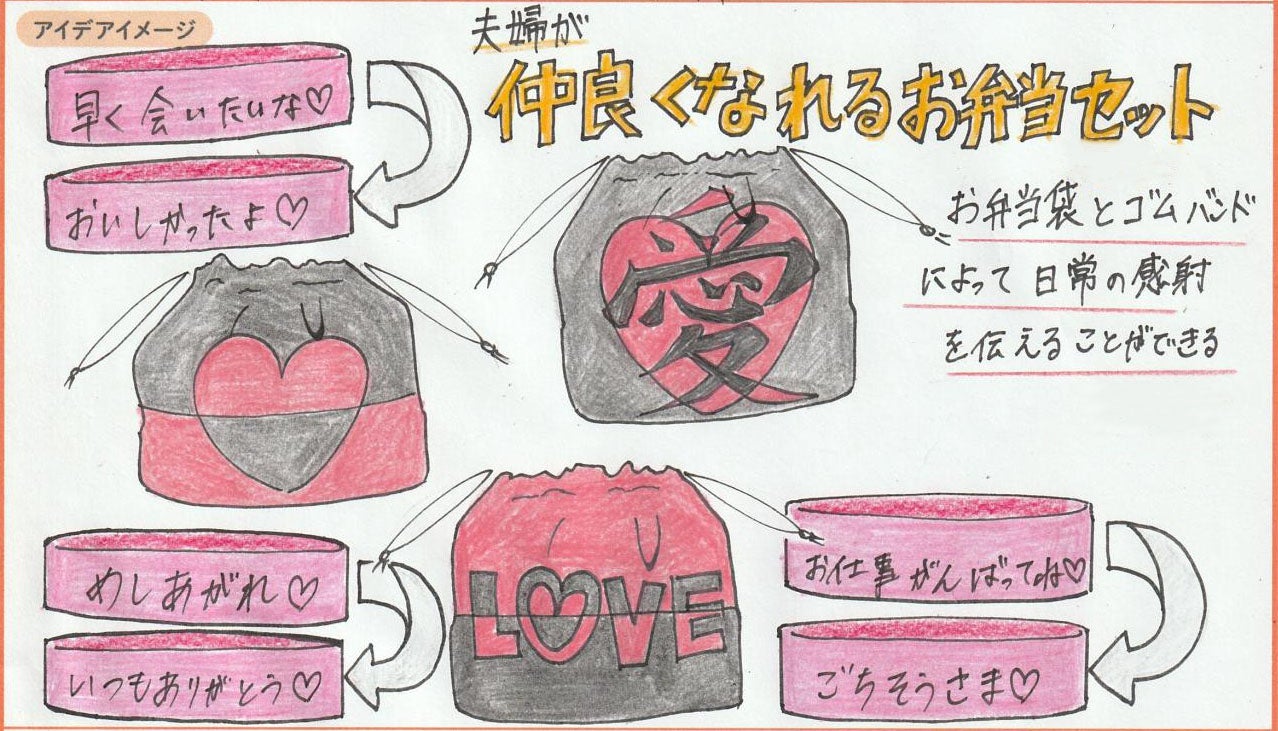 アイデアイメージ
夫婦が
仲良くなれるお弁当セット
早く会いたいな♡
おいしかったよ♡
お弁当袋とゴムバンド
によって日常の感射
を伝えることができる
愛
LOVE
めしあがれ♡
いつもありがとう♡
お仕事がんばってね♡
ごちそうさま♡